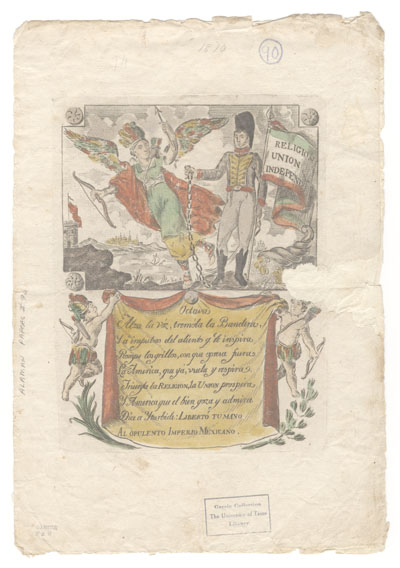 10
RELIGIO
UNION
INDEPEN
Octava
la voz, tremola la Bandera,
impulsas del aliento y él inspira
los grillos, con que
la America, que ya, vuela y respira
Triunfa la RELIGION, la UNION prospera
Y America que el bien goza y admira
Dice a Yturbide: LIBERTÓ TU MANO
AL OPULENTO IMPERIO MEXICANO.
ALAMAN PAPERS
Garcia Collection
The University of Texas
Library